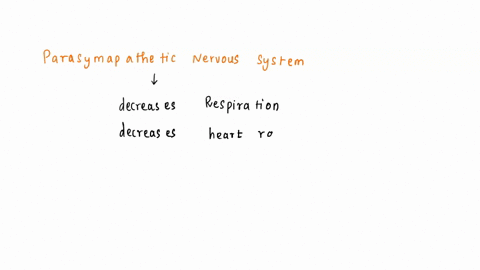 Parasymapathetic Nervous System
↓
decreases Respiration
decreases heart ra